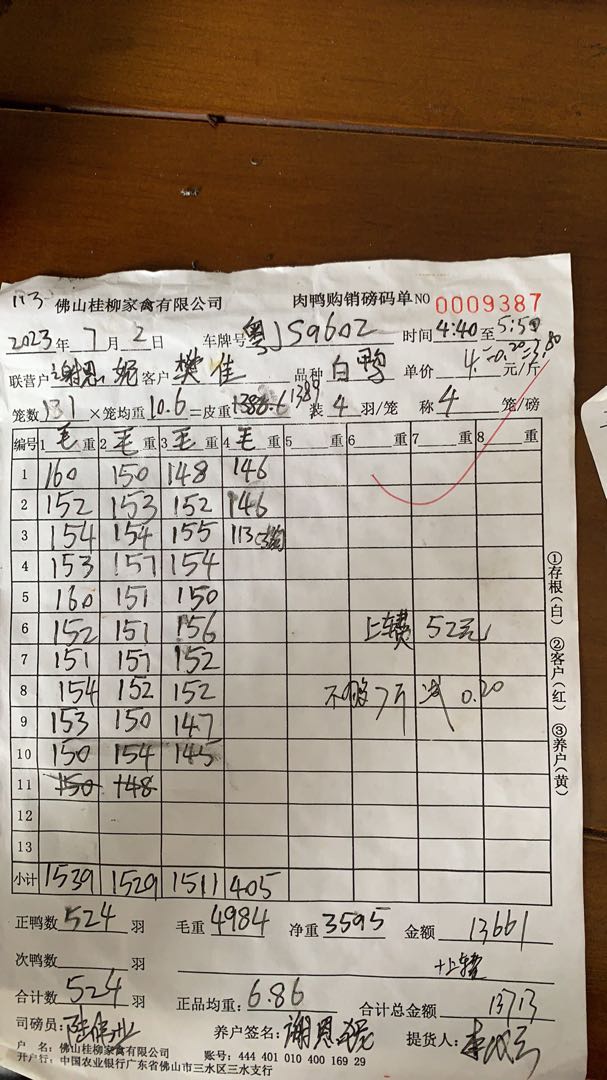 113 佛山桂柳家禽有限公司 肉鸭购销磅码单 NO 0009387
2023年7月2日 车牌号 粤JS9602 时间 4:40 至 5:50
联营户 谢恩妮 客户 樊佳 品种 白鸭 单价 4-0.20=3.80 元/斤
笼数 131 ×笼均重 10.6 =皮重 1388.6 1389 装 4 羽/笼 称 4 笼/磅
编号 1 毛 重 2 毛 重 3 毛 重 4 毛 重 5 重 6 重 7 重 8 重
1 160 150 148 146
2 152 153 152 146
3 154 154 155 113
4 153 157 154
5 160 151 150
6 152 151 156 上车费 52元
7 151 157 152
8 154 152 152 不够7斤 减 0.20
9 153 150 147
10 150 154 145
11 150 148
12
13
小计 1539 1529 1511 405
正鸭数 524 羽 毛重 4984 净重 3595 金额 13661
次鸭数 羽 +上车费
合计数 524 羽 正品均重: 6.86 合计总金额 13713
司磅员: 养户签名: 谢恩妮 提货人:
户 名: 佛山桂柳家禽有限公司 账号: 444 401 010 400 169 29
开户行: 中国农业银行广东省佛山市三水区三水支行
①存根(白) ②客户(红) ③养户(黄)